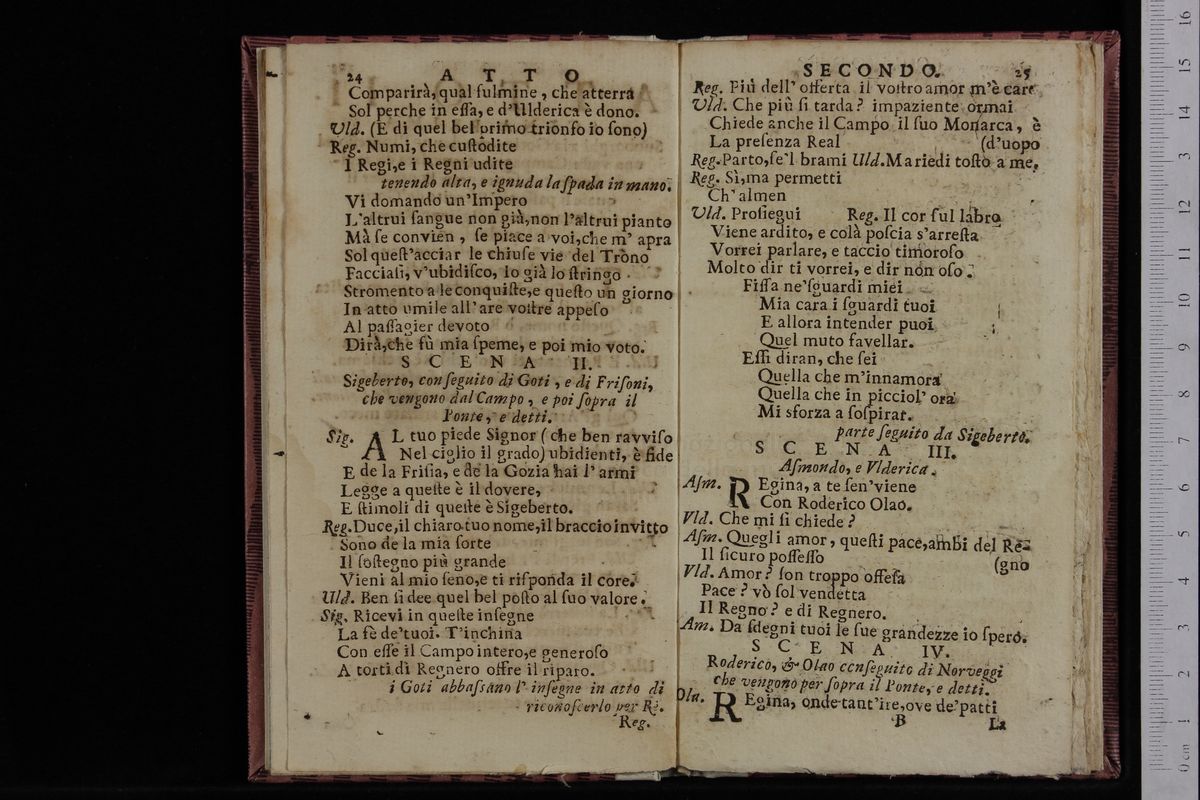 24 ATTO
Comparirà, qual fulmine, che atterra
Sol perche in eſſa, e d'Ulderica è dono.
Vld. (E di quel bel primo trionfo io ſono)
Reg. Numi, che cuſtodite
I Regi, e i Regni udite
tenendo alta, e ignuda la ſpada in mano.
Vi domando un'Impero
L'altrui ſangue non già, non l'altrui pianto
Mà ſe convien, ſe piace a voi, che m' apra
Sol queſt'acciar le chiuſe vie del Trono
Facciaſi, v'ubidiſco, Io già lo ſtringo
Stromento a le conquiſte, e queſto un giorno
In atto umile all' are voſtre appeſo
Al paſſagier devoto
Dirà, che fù mia ſpeme, e poi mio voto.
SCENA II.
Sigeberto, con ſeguito di Goti, e di Friſoni,
che vengono dal Campo, e poi ſopra il
Ponte, e detti.
Sig. AL tuo piede Signor (che ben ravviſo
Nel ciglio il grado) ubidienti, è fide
E de la Friſia, e de la Gozia hai l' armi
Legge a queſte è il dovere,
E ſtimoli di queſte è Sigeberto.
Reg. Duce, il chiaro tuo nome, il braccio invitto
Sono de la mia ſorte
Il ſoſtegno più grande
Vieni al mio ſeno, e ti riſponda il core.
Uld. Ben ſi dee quel bel poſto al ſuo valore.
Sig. Ricevi in queſte inſegne
La fè de'tuoi. T'inchina
Con eſſe il Campo intero, e generoſo
A torti di Regnero offre il riparo.
i Goti abbaſsano l' inſegne in atto di
riconoſcerlo per Rè.
Reg.
SECONDO. 25
Reg. Più dell' offerta il voſtro amor m'è care
Vld. Che più ſi tarda? impaziente ormai
Chiede anche il Campo il ſuo Monarca, è
La preſenza Real (d'uopo
Reg. Parto, ſe'l brami Uld. Ma riedi toſto a me.
Reg. Sì, ma permetti
Ch' almen
Vld. Proſiegui Reg. Il cor ſul labro
Viene ardito, e colà poſcia s'arreſta
Vorrei parlare, e taccio timoroſo
Molto dir ti vorrei, e dir non oſo.
Fiſſa ne'ſguardi miei
Mia cara i ſguardi tuoi
E allora intender puoi
Quel muto favellar.
Eſſi diran, che ſei
Quella che m'innamora
Quella che in picciol' ora
Mi sforza a ſoſpirar.
parte ſeguito da Sigeberto.
SCENA III.
Aſmondo, e Vlderica.
Aſm. REgina, a te ſen'viene
Con Roderico Olao.
Vld. Che mi ſi chiede?
Aſm. Quegli amor, queſti pace, ambi del Re-
Il ſicuro poſſeſſo (gno
Vld. Amor? ſon troppo offeſa
Pace? vò ſol vendetta
Il Regno? e di Regnero.
Am. Da ſdegni tuoi le ſue grandezze io ſperò.
SCENA IV.
Roderico, & Olao con ſeguito di Norveggi
che vengono per ſopra il Ponte, e detti.
Ola. REgina, onde tant'ire, ove de'patti
B La
0 cm 1 2 3 4 5 6 7 8 9 10 11 12 13 14 15 16